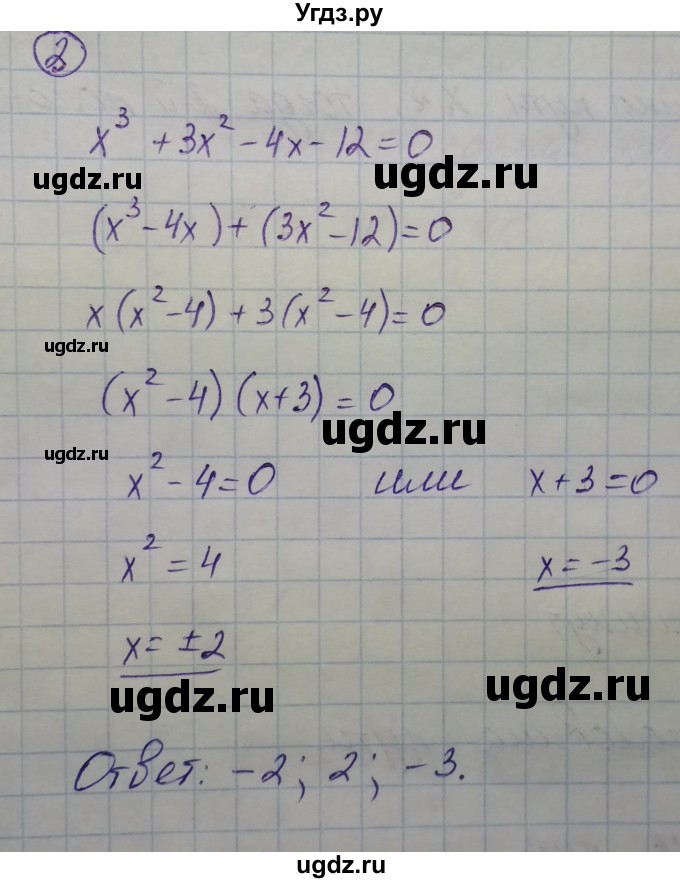 Угдз.ру
2
x³ + 3x² - 4x - 12 = 0
ugdz.ru ugdz.ru
(x³ - 4x) + (3x² - 12) = 0
x(x² - 4) + 3(x² - 4) = 0
ugdz.ru
(x² - 4)(x + 3) = 0
ugdz.ru
ugdz.ru
x² - 4 = 0 или x + 3 = 0
x² = 4 x = -3
x = ±2
ugdz.ru ugdz.ru
Ответ: -2; 2; -3.
ugdz.ru